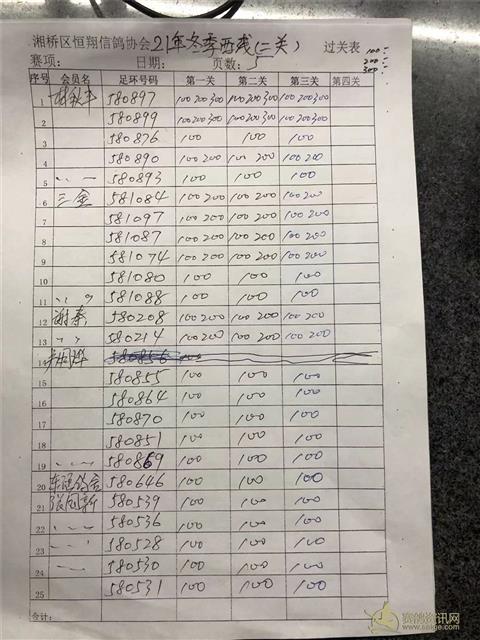 湘桥区恒翔信鸽协会 21年冬季西线(二关) 过关表 100:
赛项: 日期: 页数: 5 200:
300:
序号 会员名 足环号码 第一关 第二关 第三关 第四关
1 580897 100 200 300 100 200 300 100 200 300
2 580899 100 200 300 100 200 300 100 200 300
3 580876 100 100 100
4 580890 100 200 100 200 100 200
5 580893 100 100 100
6 三金 581084 100 200 100 200 100 200
7 581097 100 200 100 200 100 200
8 581087 100 200 100 200 100 200
9 581074 100 200 100 200 100 200
10 581080 100 100 100
11 581088 100 100 100
12 谢秦 580208 100 200 100 200 100 200
13 580214 100 200 100 200 100 200
14 580856 100
15 580855 100 100 100
16 580864 100 100 100
17 580870 100 100 100
18 580851 100 100 100
19 580869 100 100 100
20 580646 100 100 100
21 580539 100 100 100
22 580536 100 100 100
23 580528 100 100 100
24 580530 100 100 100
25 580531 100 100 100
合计:
赛鸽资讯网
www.saige.com